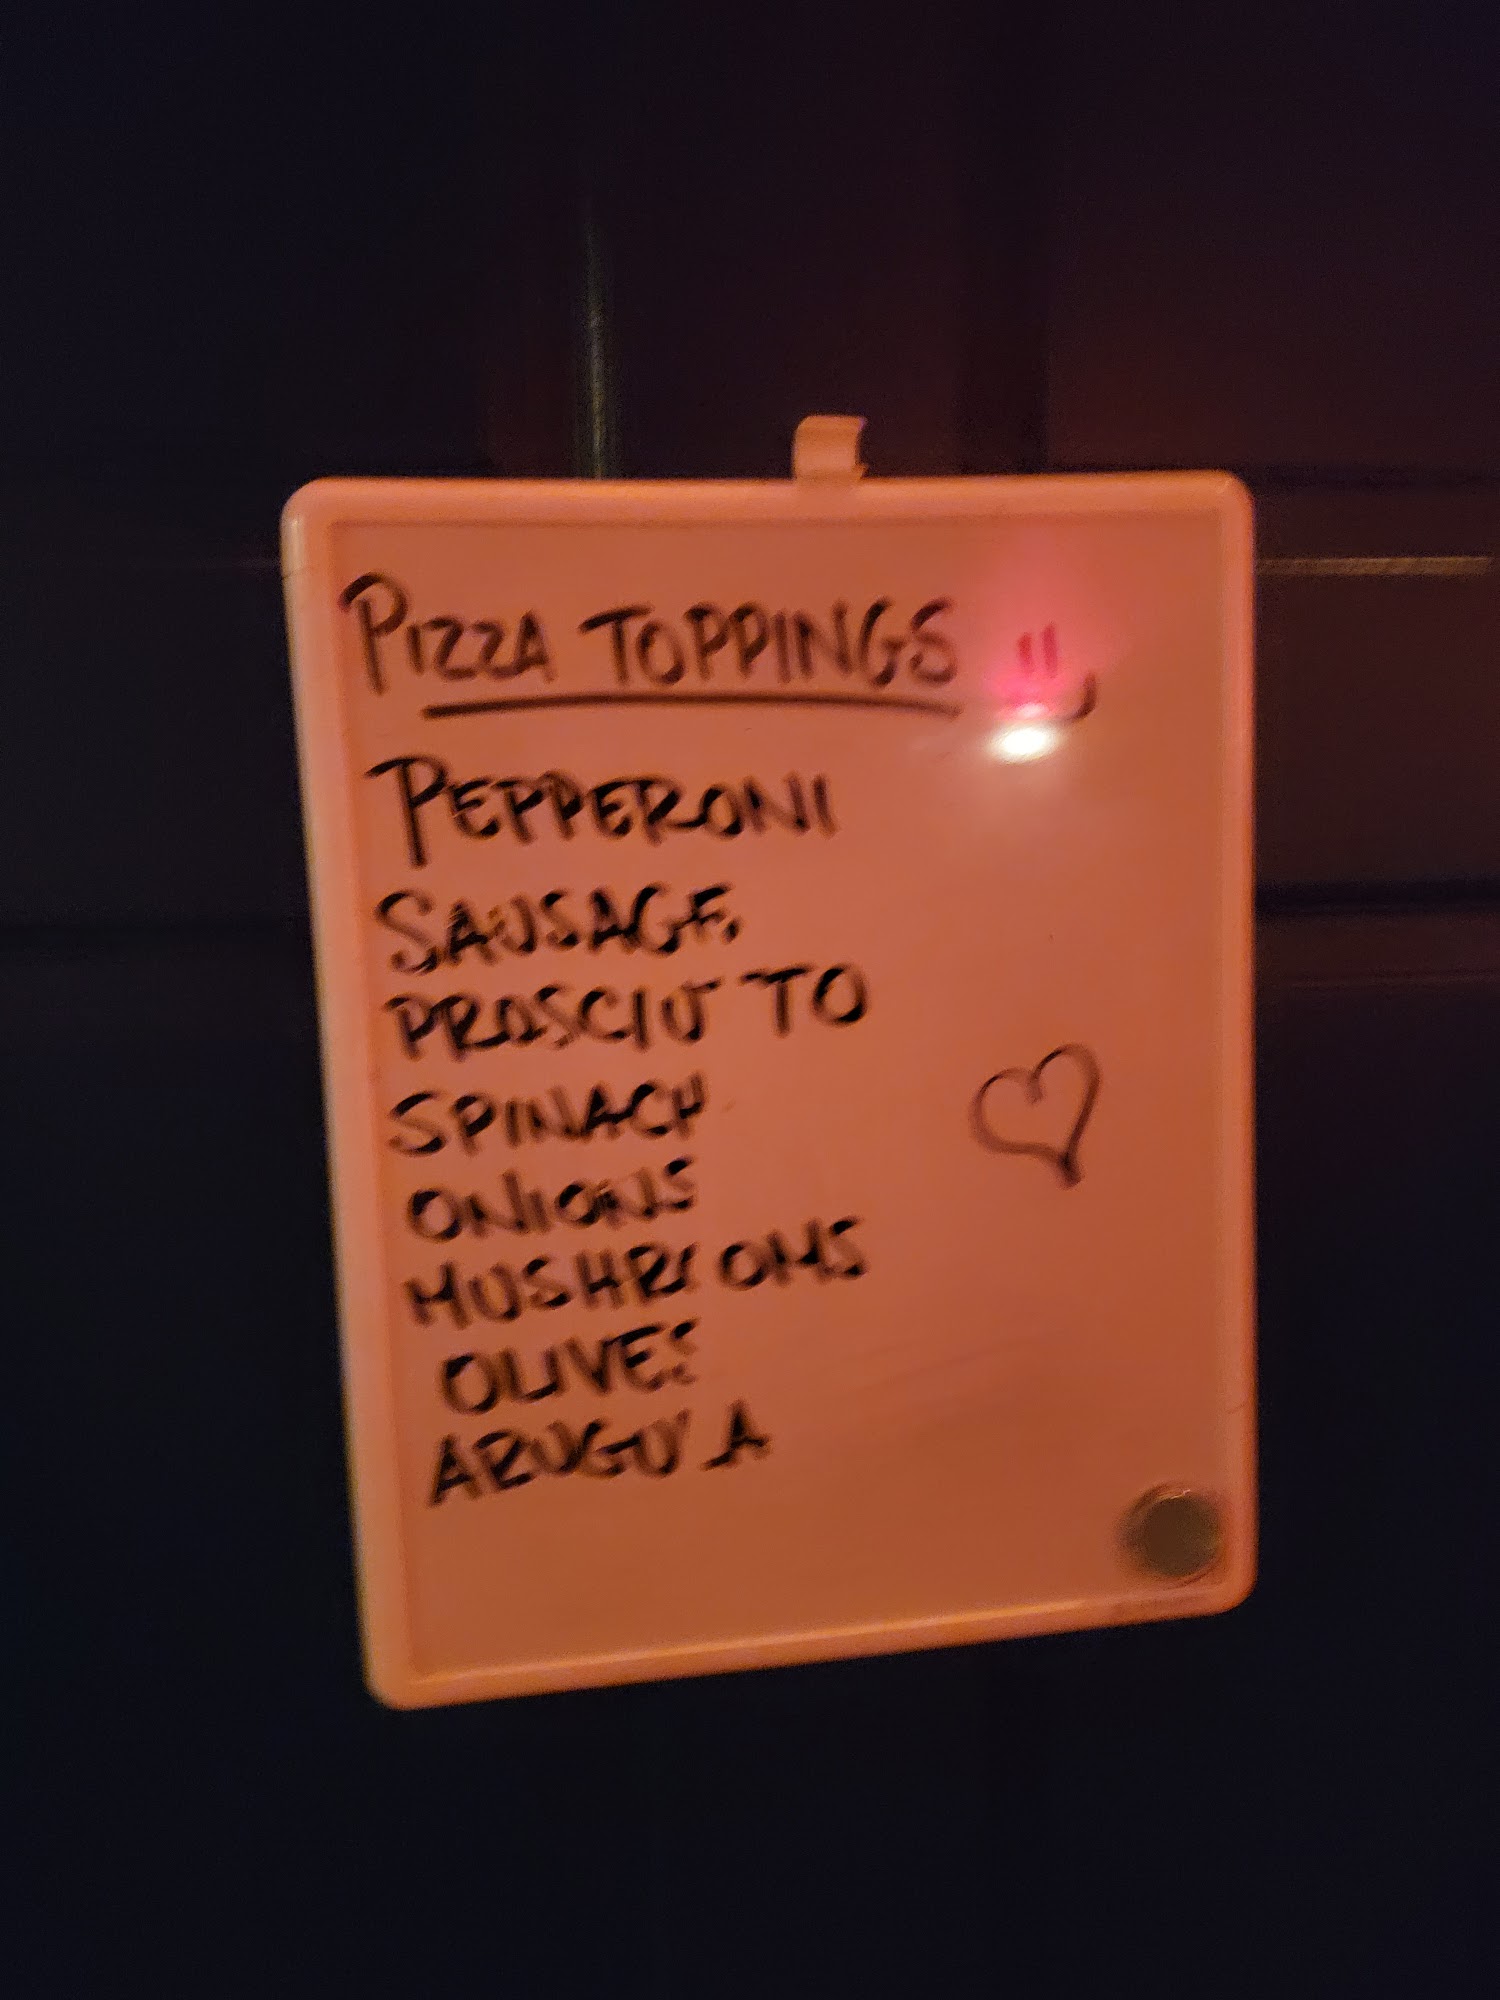 PIZZA TOPPINGS
PEPPERONI
SAUSAGE
PROSCIUTTO
SPINACH
ONIONS
MUSHROOMS
OLIVES
ARUGULA